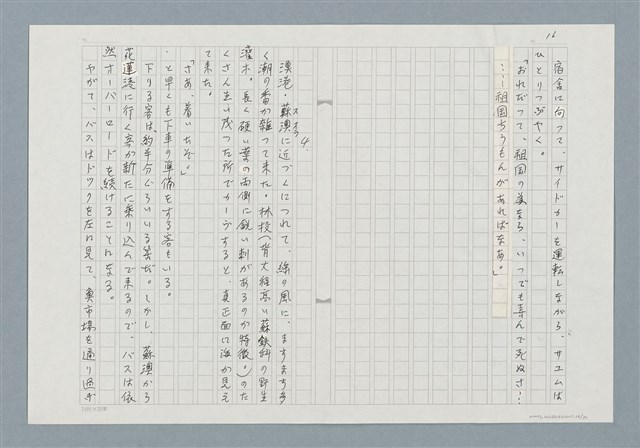 16
宿舎に向って、サイドカーを運転しながら、サユムは
ひとりつぶやく。
「おれだって、祖国の為なら、いつでも喜んで死ぬさ…
…祖国ちうもんがあればなあ。」
4
漁港・蘇澳に近づくにつれて、緑の風に、ますます多
スオウ
く潮の香が雑って来た。林投(背丈程高い蘇鉄科の野生
灌木。長く硬い葉の両側に鋭い刺があるのが特徴。)のた
くさん生い茂った所でカーブすると、真正面に海が見え
て来た。
「さあ、着いたぞ。」
と早くも下車の準備をする客もいる。
下りる客は、約半分ぐらいいる筈だ。しかし、蘇澳から
花蓮港に行く客が新たに乗り込んで来るので、バスは依
然オーバーロードを続けることになる。
やがて、バスはドックを左に見て、魚市場を通り過ぎ